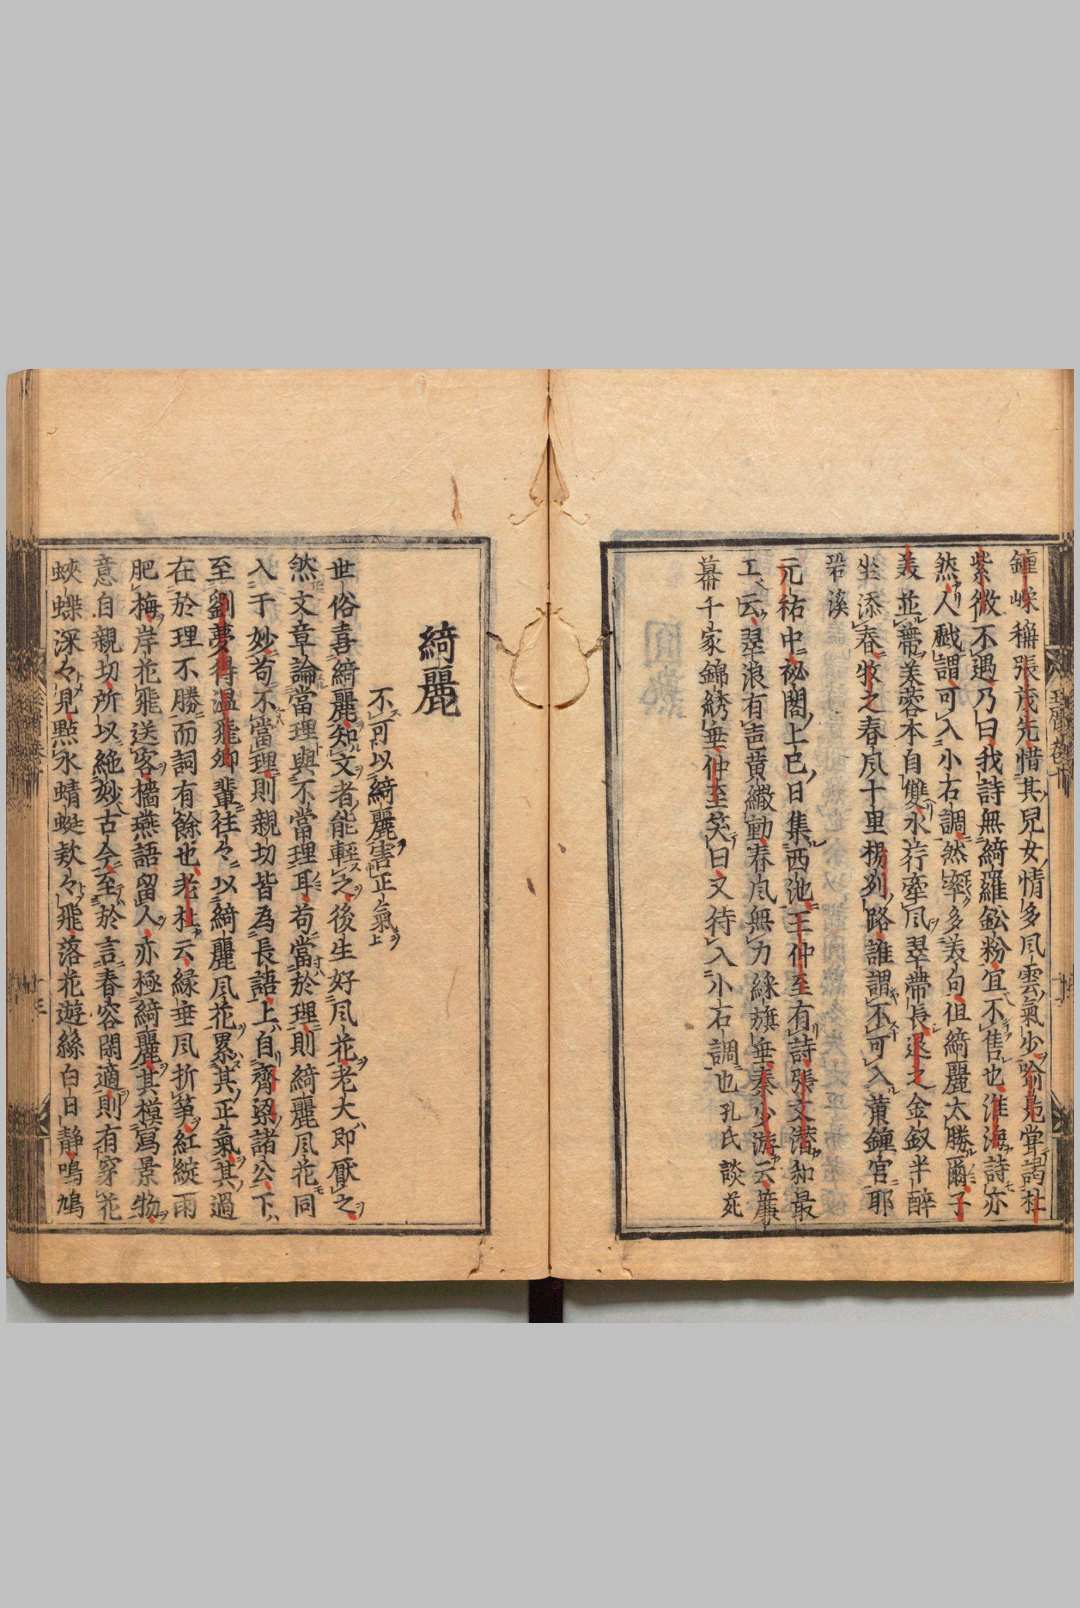 鍾嶸稱張茂先惜其兒女情多風雲氣少喻鳧嘗謁杜
紫微不遇乃曰我詩無綺羅鉛粉宜不售也淮海詩亦
然人戲謂可入小石調然率多美句但綺麗太勝爾子
美並蔕芙蓉本自雙水荇牽風翠帶長退之金釵半醉
坐添春牧之春風十里楊列路誰謂不可入黃鍾宮耶
䂬溪
元祐中祕閣上巳日集西池王仲至有詩張文潜和最
工云翠浪有声黄繖動春風無力綵旗垂秦少游云簾
幕千家錦綉垂仲至笑曰又待入小石調也孔氏談苑
綺麗
不可以綺麗害正氣上
世俗喜綺麗知文者能輕之後生好風花老大即厭之
然文章論當理與不當理耳苟當於理則綺麗風花同
入于妙苟不當理則親切皆為長語上自齊梁諸公下
至劉夢得溫飛卿輩往々以綺麗風花累其正氣其過
在於理不勝而詞有餘也老杜云緑垂風折笋紅綻雨
肥梅岸花飛送客檣燕語留人亦極綺麗其模寫景物
意自親切所以絶妙古今至於言春容閑適則有穿花
蛺蝶深々見點水蜻蜓欵々飛落花遊絲白日静鳴鳩